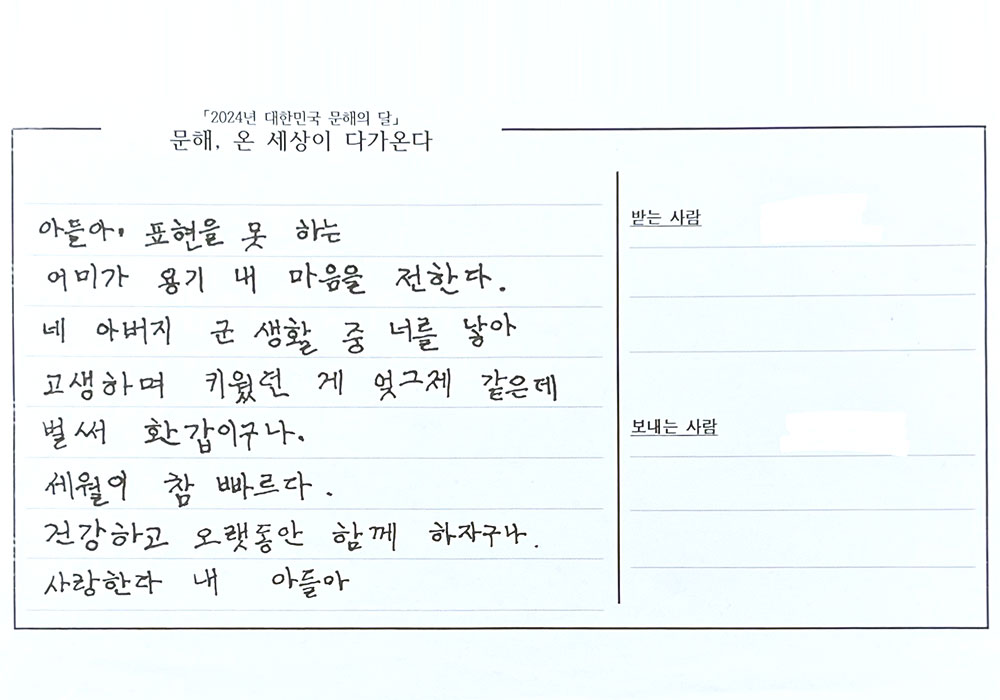 「2024년 대한민국 문해의 달」
문해, 온 세상이 다가온다
아들아, 표현을 못 하는
어미가 용기 내 마음을 전한다.
네 아버지 군 생활 중 너를 낳아
고생하며 키웠던 게 엊그제 같은데
벌써 환갑이구나.
세월이 참 빠르다.
건강하고 오랫동안 함께 하자구나.
사랑한다 내 아들아
받는 사람
보내는 사람